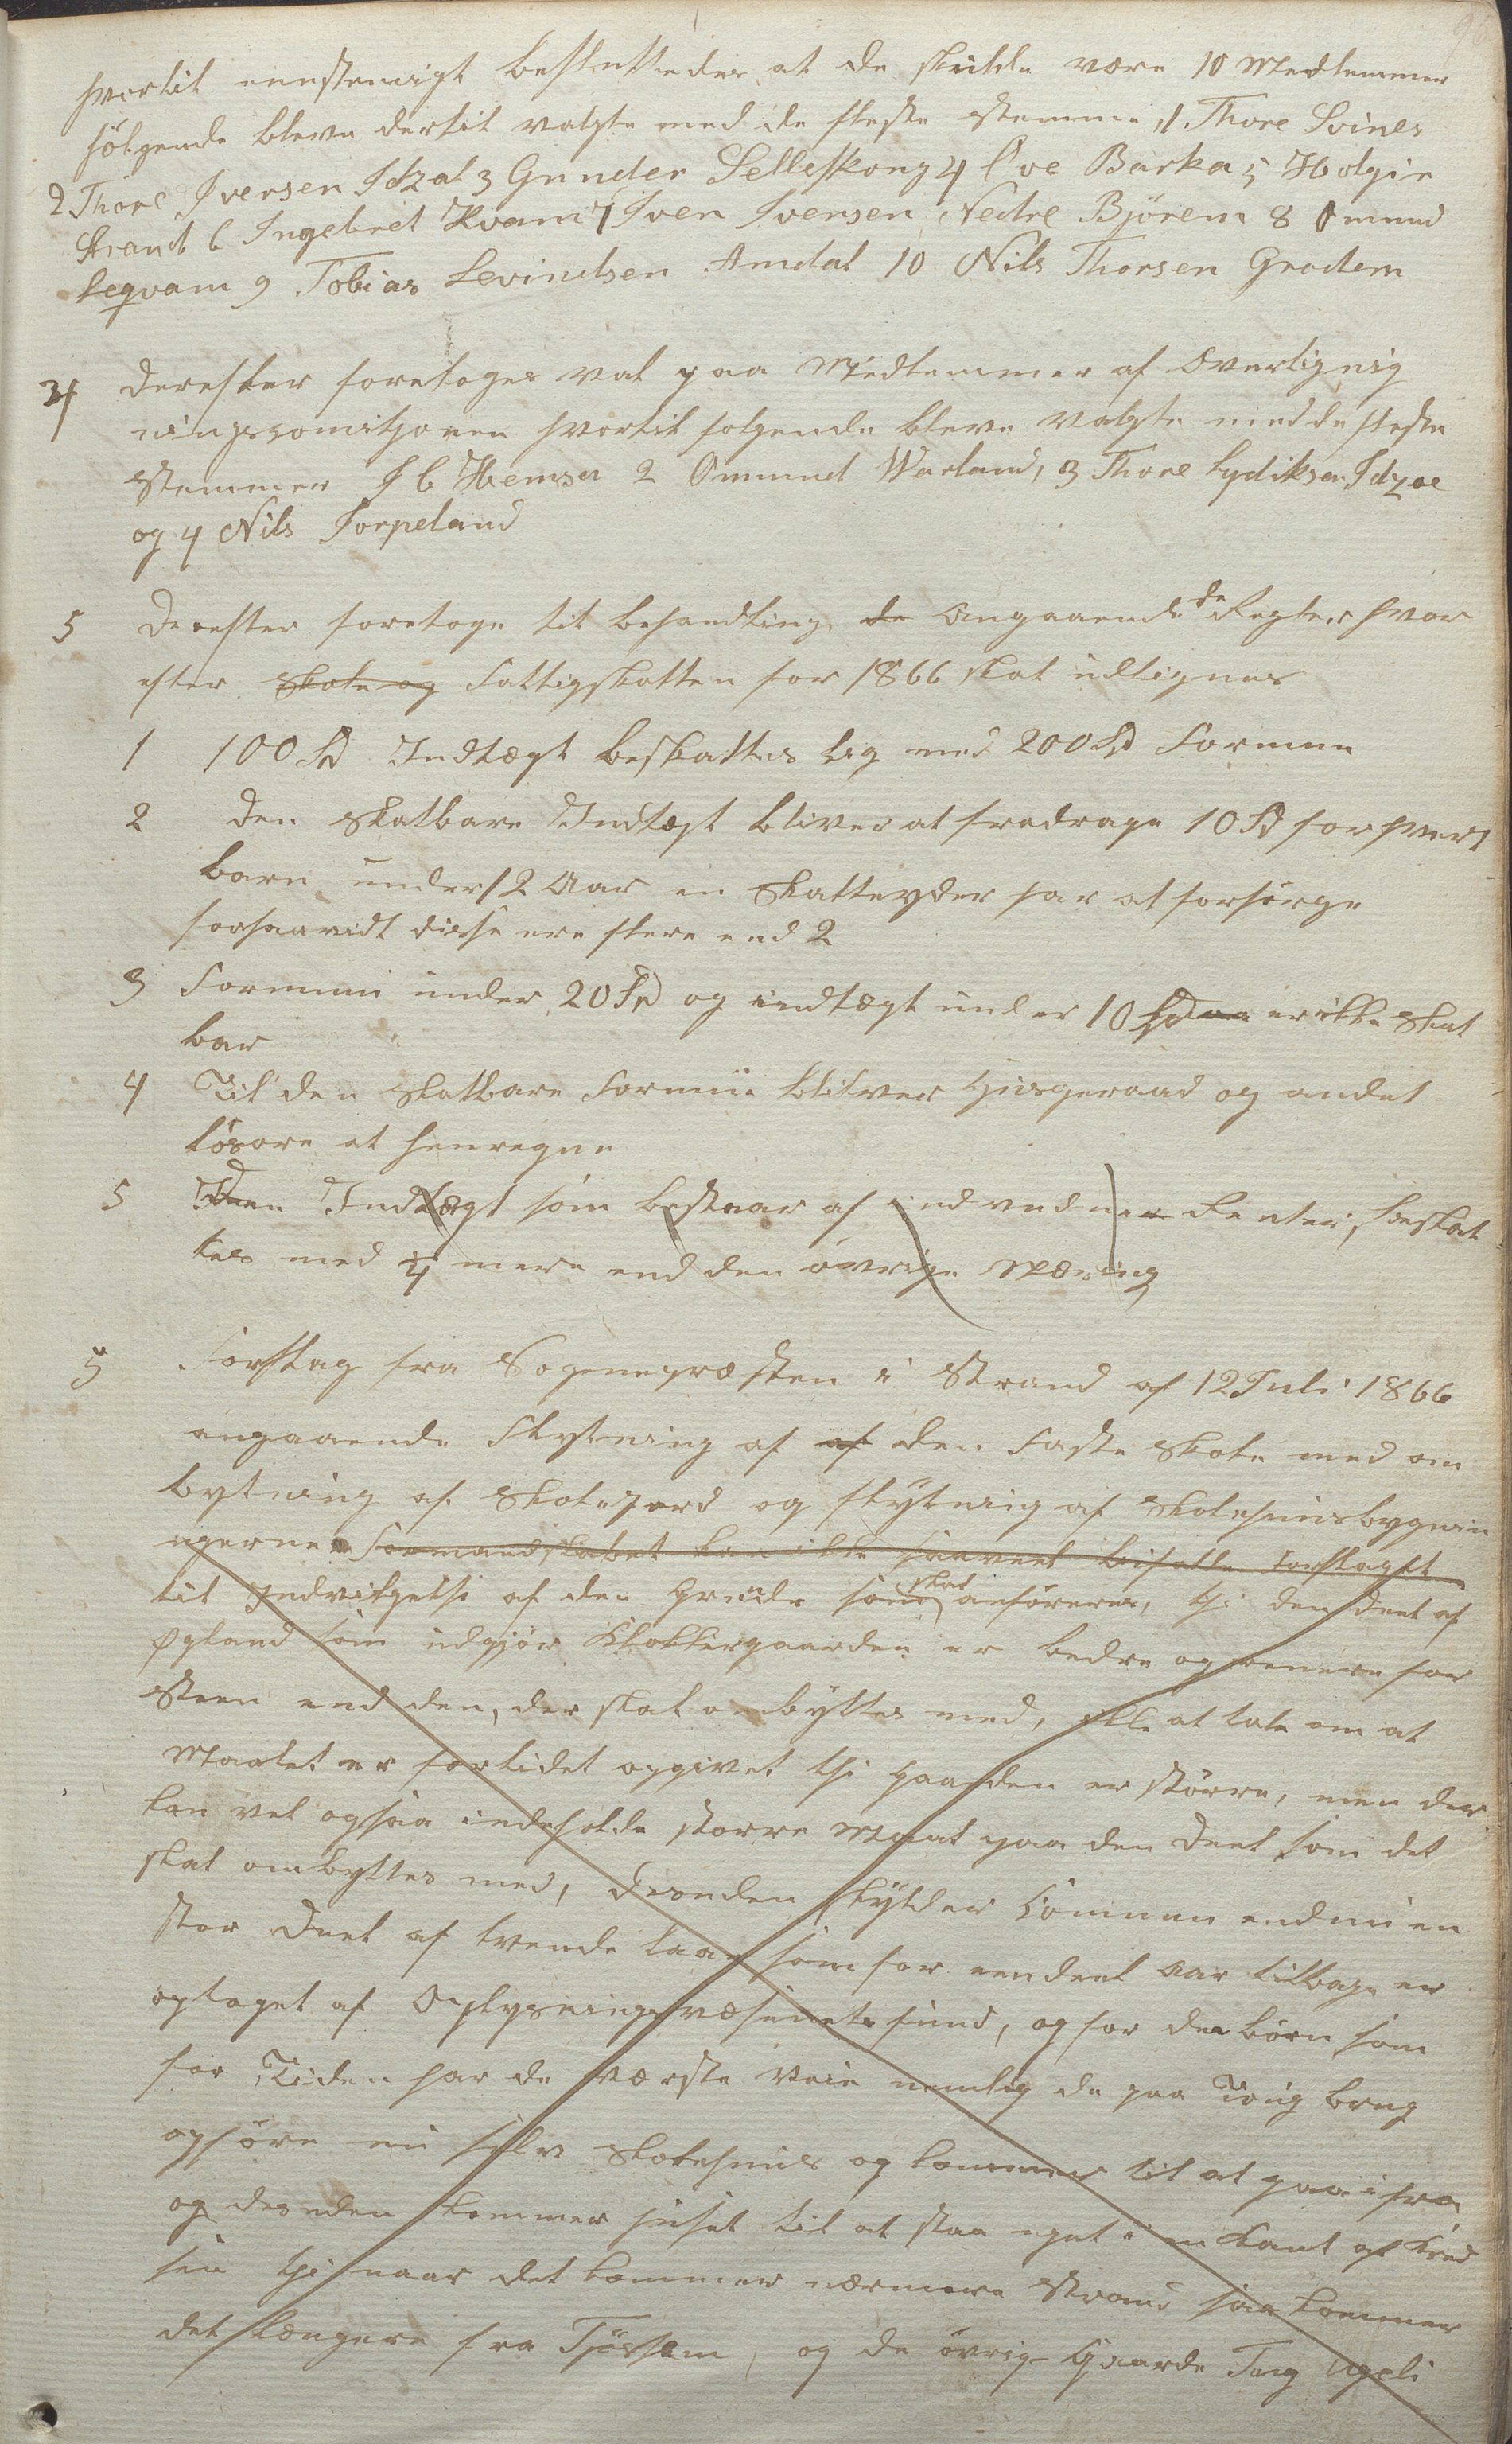 hvortil eenstemigt besluttedes at de skulde være 10 Medlemmer
følgende bleve dertil valgte med de fleste stemmer, 1 Thore Svines
2 Thore Iversen Idzal 3 Gunder Selleskong 4 Ove Barka 5 Holgir
Strand 6 Ingebret Kvam 7 Iven Ivensen Nedre Bjørem 8 Omund
Leqvam 9 Tobias Levindsen Amdal 10 Nils Thorsen Grodem
4 Derefter foretoges val paa Medlemmer af Overlignig
ningscomitjonen hvortil folgende bleve valgte med de fleste
Stemmer J C Hemsen 2 Ommund Warland, 3 Thore Lydiksen Idzoe
og 4 Nils Torpeland
5 Derefter foretoge til behandling de Angaaende de Regler hvor
efter Skole og Fattigskatten for 1866 skal udlignes
1 100 Sp Indtægt beskattes lig med 200 Sp Formue
2 Den skatbare Indtægt bliver at fradrage 10 Sp for hvert
barn under 12 Aar en Skatteyder har at forsørge
forsaavidt disse ere flere end 2
3 Formue under 20 Sp og indtægt under 10 Sp er ikke Skat
bar
4 Til den skatbare Formue bliver Husgeraad og andet
løsøre at henregne
5 Den Indtægt som bestaar af indvundne Renter, beskat
tes med 4 mere end den øvrige Næring
5 Forslag fra Sognepræsten i Strand af 12 Juli 1866
angaaende Flytning af af den Faste Skole med om
bytning af Skolejord og flytnig af Skolehuusbygnin
gerne Formandskabet kan ikke bifalde Forslaget
til Indvilgelse af den Grunde som skal anføreres, thi den deel af
Øgland som udgjør Klokkergaarden er bedre og renere for
Steen end den, der skal ombyttes med, ikke at tale om at
Maalet er forlidet opgivet thi Gaarden er større, men der
kan vel ogsaa indeholde storre Maal paa den Deel som det
skal ombyttes med, desuden skylder Communen endnu en
stor Deel af tvende Laan som for eendeel Aar tilbage er
optaget af Oplysningsvæsenets fund, og for de børn som
for Tiden har de værste Veie nemlig de paa Tøug brug
opføre nu selv Skolehuus og kommer til at gaa ifra
og desuden kommer huset til at staa eget i en Kant af Kred
sen thi naar det kommer nærmere Strand saa kommer
det længere fra Tjøssem, og de øvrige Gaarde Tag